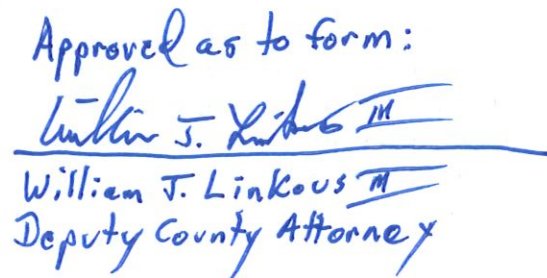 Approved as to form:
William J. Linkous III
William J. Linkous III
Deputy County Attorney